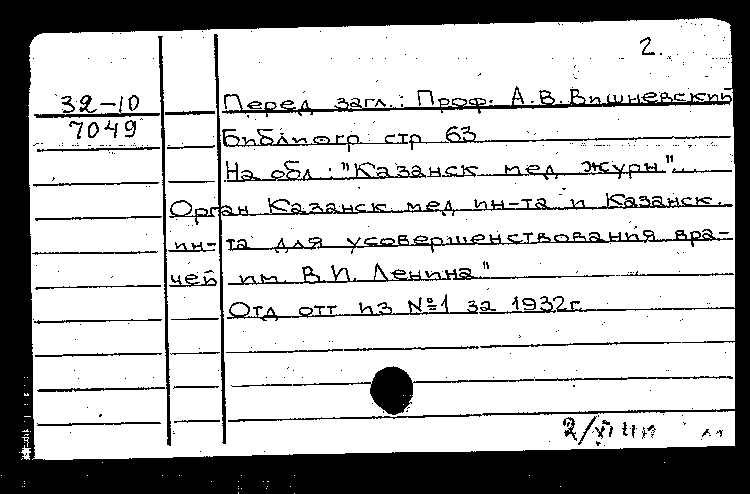 2.
32-10
7049
Перед загл.: Проф. А.В.Вишневский
Библиогр стр 63
На обл: "Казанск мед журн"..
Орган Казанск мед ин-та и Казанск.
ин-та для усовершенствования вра-
чей им. В.И. Ленина"
Отд отт из №1 за 1932г.
2/XI